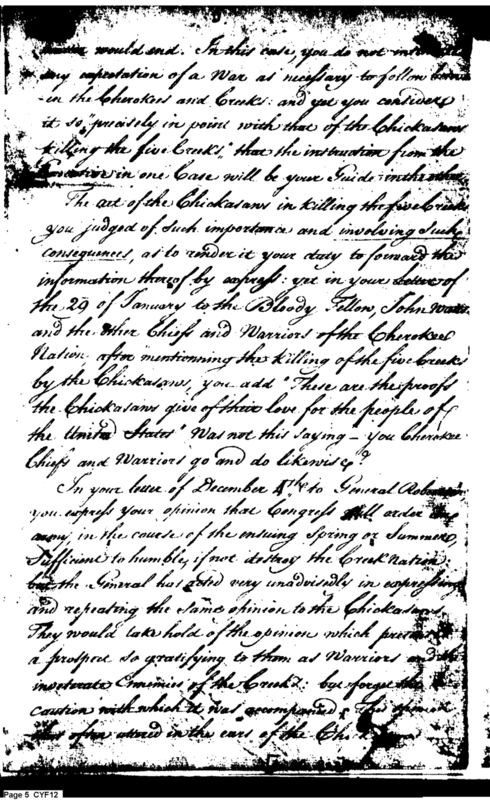 would end. In this case, you do not
any expectation of a War as necessary to follow
-in the Cherokees and Creeks: and yet you consider
it so, "precisely in point with that of the Chickasaws
killing the five Creeks," that the instruction from the
in one Case will be your Guide in the other
The act of the Chickasaws in killing the five Creeks
you judged of such importance and involving such
consequences, as to render it your duty to forward the
information thereof by express: yet in your letter of
the 29 of January to the Bloody Fellow, John Watts
and the other Chiefs and Warriors of the Cherokee
Nation, after mentionning the killing of the five Creeks
by the Chickasaws, you add "These are the proofs
the Chickasaws give of their love for the people of
the United States" Was not this saying – you Cherokee
Chiefs and Warriors go and do likewise?
In your letter of December 4th to General Robertson
you express your opinion that Congress will order
army, in the course of the ensuing Spring or Summer,
sufficient to humble, if not destroy the Creek Nation
but the General has acted very unadvisedly in expressing
and repeating the same opinion to the Chickasaws.
They would take hold of the opinion which
a prospect so gratifying to them as Warriors and
inveterate Enemies of the Creeks: but forget the
caution with which it was accompanied. This opinion
often uttered in the ears of the
Page 5 CYF12